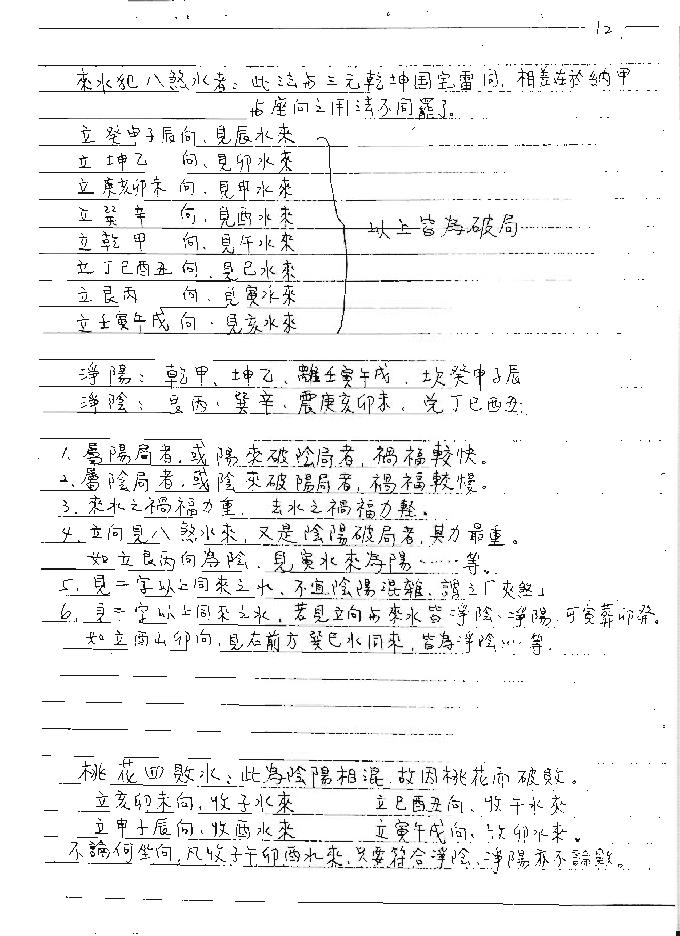 12.
來水犯八煞水者：此法与三元乾坤国宝雷同，相差在於納甲
与座向之用法不同罷了。
立癸申子辰向、見辰水來
立 坤乙 向、見卯水來
立庚亥卯未向、見申水來
立 巽 辛 向、見酉水來
立 乾 甲 向、見午水來
立丁巳酉丑向、見巳水來
立艮丙 向、見寅水來
立壬寅午戌向、見亥水來
以上皆為破局
淨陽：乾甲、坤乙、離壬寅午戌、坎癸申子辰
淨陰：艮丙、巽辛、震庚亥卯未、兌丁巳酉丑
1. 屬陽局者，或陽來破陰局者，禍福較快。
2. 屬陰局者，或陰來破陽局者，禍福較慢。
3. 來水之禍福力重，去水之禍福力輕。
4. 立向見八煞水來，又是陰陽破局者，其力最重。
如立艮丙向為陰，見寅水來為陽……等。
5. 見二字以上同來之水、不宜陰陽混雜，謂之「夾煞」
6. 見二字以上同來之水，若見立向与來水皆淨陰、淨陽，可寅葬卯發。
如立酉山卯向，見右前方巽巳水同來，皆為淨陰…等．
桃花四敗水：此為陰陽相混，故因桃花而破敗。
立亥卯未向，收子水來 立巳酉丑向、收午水來
立申子辰向、收酉水來 立寅午戌向、收卯水來。
不論何坐向，凡收子午卯酉水來，只要符合淨陰、淨陽亦不論敗。